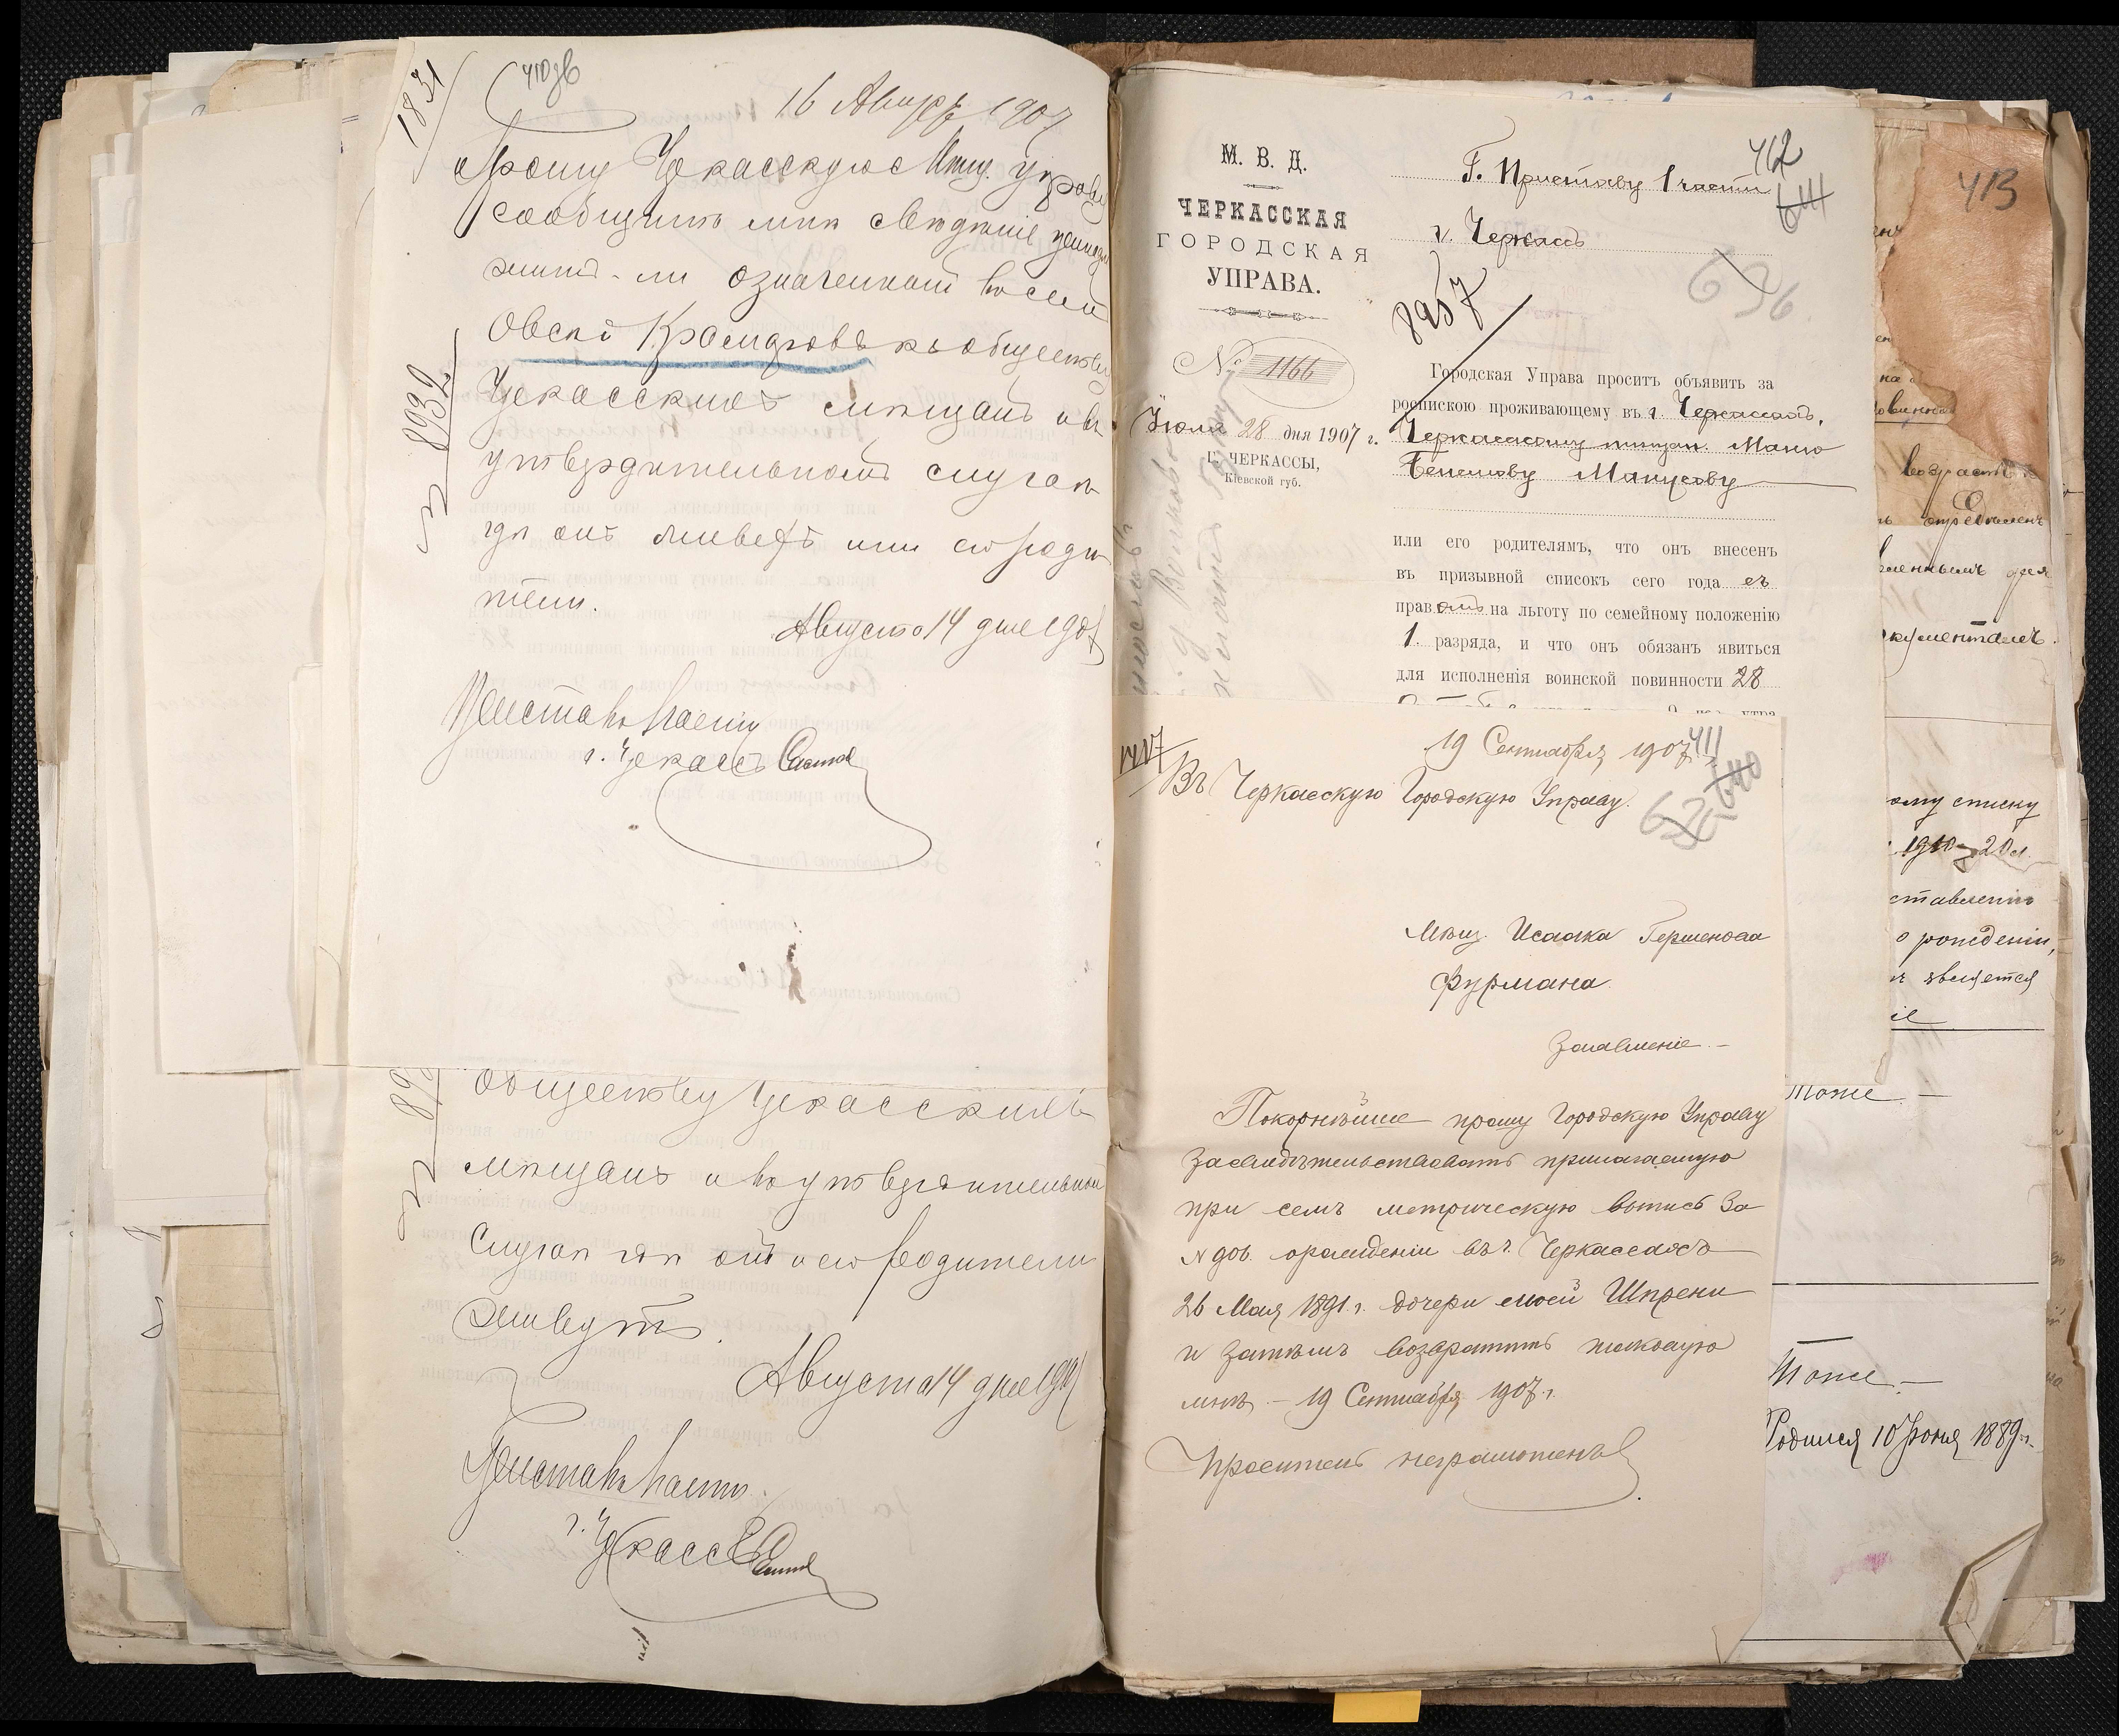 1831
410 об
16 Август 1907
Прошу Черкасскую Мѣщ. управу
сообщить мнѣ свѣдѣніе принадле
житъ-ли означенный Іосель
Овсей Крамаровъ къ обществу
Черкасскихъ мѣщанъ и въ
утвердительномъ случаѣ
гдѣ онъ живетъ или его роди
тели.
Августа 14 дня 1907
№ 8932
Приставъ 1 части
г. Черкассъ
обществу Черкасскихъ
мѣщанъ и въ утвердительномъ
случаѣ гдѣ онъ и его родители
живутъ.
Августа 14 дня 1907
Приставъ 1 части
г. Черкассъ
М. В. Д.
ЧЕРКАССКАЯ
ГОРОДСКАЯ
УПРАВА.
№ 1166
Іюля 28 дня 1907 г.
Г. ЧЕРКАССЫ,
Кіевской губ.
412
641
Г. Приставу 1 части
г. Черкассъ
636
Городская Управа проситъ объявить за
роспискою проживающему въ г. Черкассахъ,
Черкасскому мѣщан. Маню
Бенемову Манусову
или его родителямъ, что онъ внесенъ
въ призывной списокъ сего года съ
правомъ на льготу по семейному положенію
1 разряда, и что онъ обязанъ явиться
для исполненія воинской повинности 28
19 Сентября 1907
411
640
Въ Черкасскую Городскую Управу.
Мѣщ. Исаака Гершенова
Фурмана
Заявленіе.—
Покорнѣйше прошу Городскую Управу
засвидѣтельствовать прилагаемую
при семъ метрическую выпись за
№ 901. о рожденіи въ г. Черкассахъ
26 Мая 1891 г. дочери моей Шпрени
и затѣмъ возвратить таковую
мнѣ.— 19 Сентября 1907 г.
Проситель неграмотенъ
413
возрастъ
опредѣленъ
ому списку
1910 г. 20 л.
ставленію
о рожденіи,
является
Тоже.—
Тоже.—
Родился 10 Іюня 1889 г.